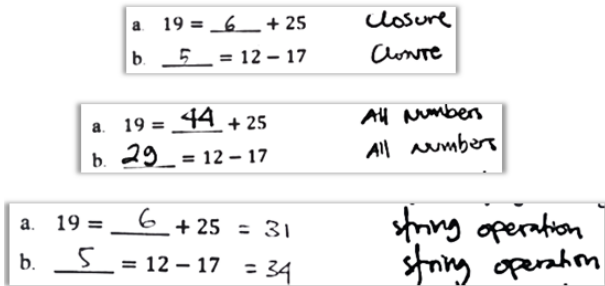 a. 19 = 6 + 25 closure
b. 5 = 12 − 17 Clonre
a. 19 = 44 + 25 All numbers
b. 29 = 12 − 17 All numbers
a. 19 = 6 + 25 = 31 string operation
b. 5 = 12 − 17 = 34 string operation